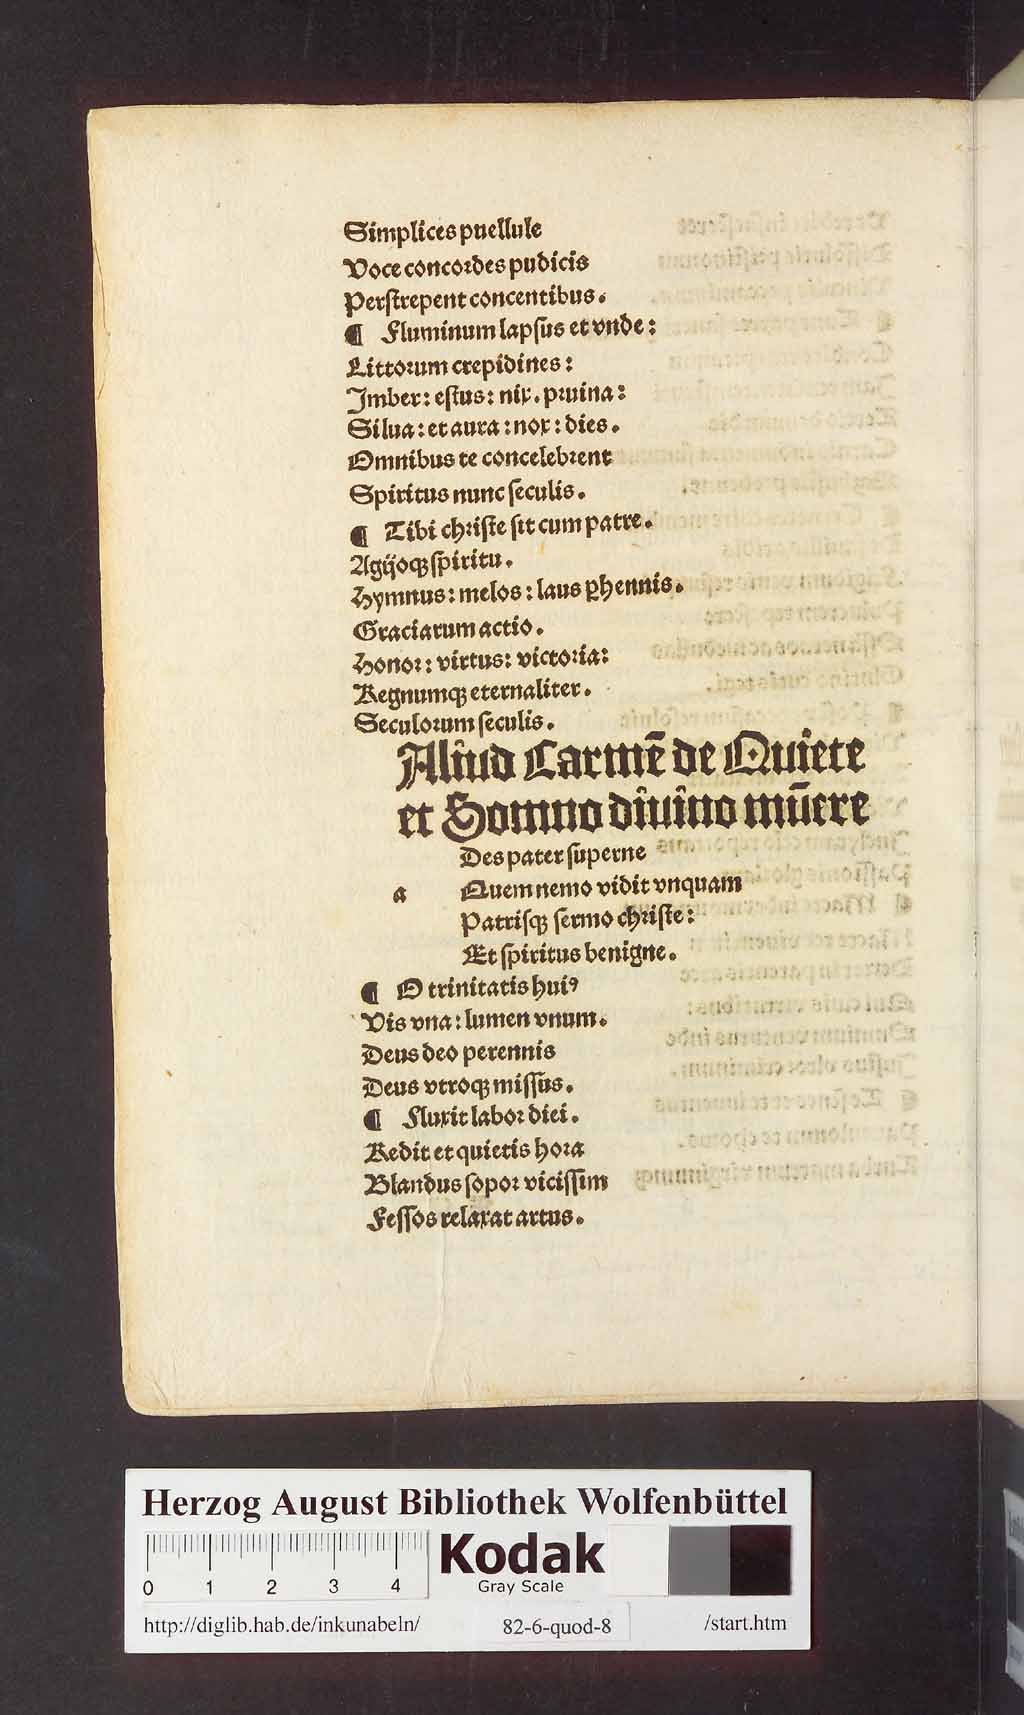 Simplices puellule
Voce concordes pudicis
Perstrepent concentibus.
¶ Fluminum lapsus et vnde:
Littorum crepidines:
Imber: estus: nix. pruina:
Silua: et aura: nox: dies.
Omnibus te concelebrent
Spiritus nunc seculis.
¶ Tibi christe sit cum patre.
Agijoqꝫ spiritu.
Hymnus: melos: laus ꝑhennis.
Graciarum actio.
Honor: virtus: victoria:
Regnumqꝫ eternaliter.
Seculorum seculis.
Aliud Carmē de Quiete
et Somno diuino mūere
Des pater superne
a Quem nemo vidit vnquam
Patrisqꝫ sermo christe:
Et spiritus benigne.
¶ O trinitatis huiꝰ
Vis vna: lumen vnum.
Deus deo perennis
Deus vtroqꝫ missus.
¶ Fluxit labor diei.
Redit et quietis hora
Blandus sopor vicissim
Fessos relaxat artus.
Herzog August Bibliothek Wolfenbüttel
0 1 2 3 4
Kodak
Gray Scale
http://diglib.hab.de/inkunabeln/ 82-6-quod-8 /start.htm